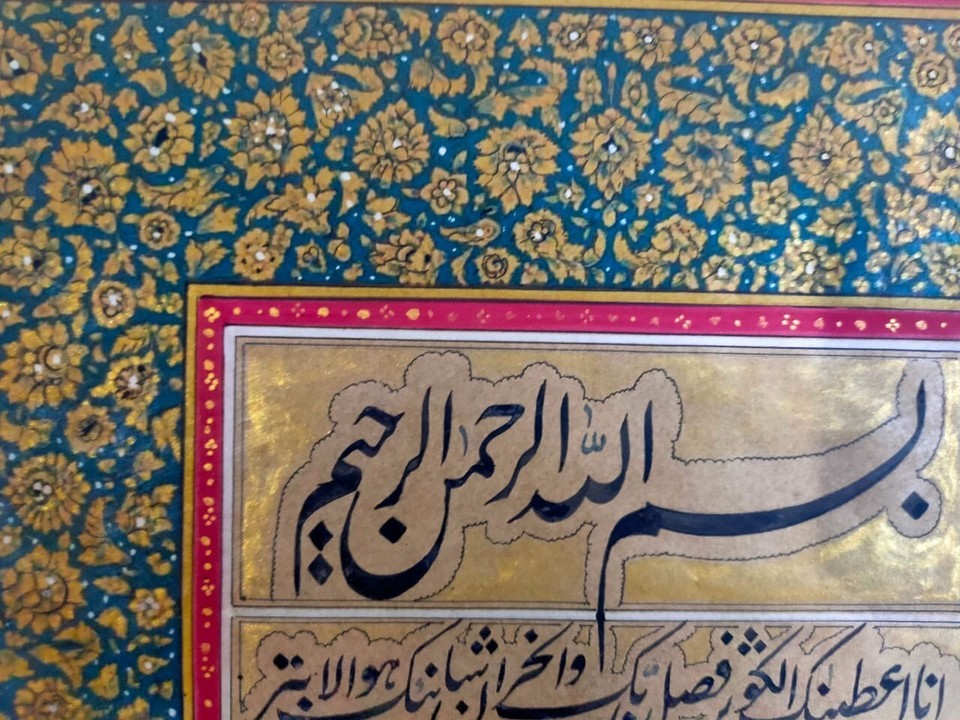 بسم الله الرحمن الرحیم
انا اعطینک الکوثر فصل لربک وانحر ان شانئک هوالابتر